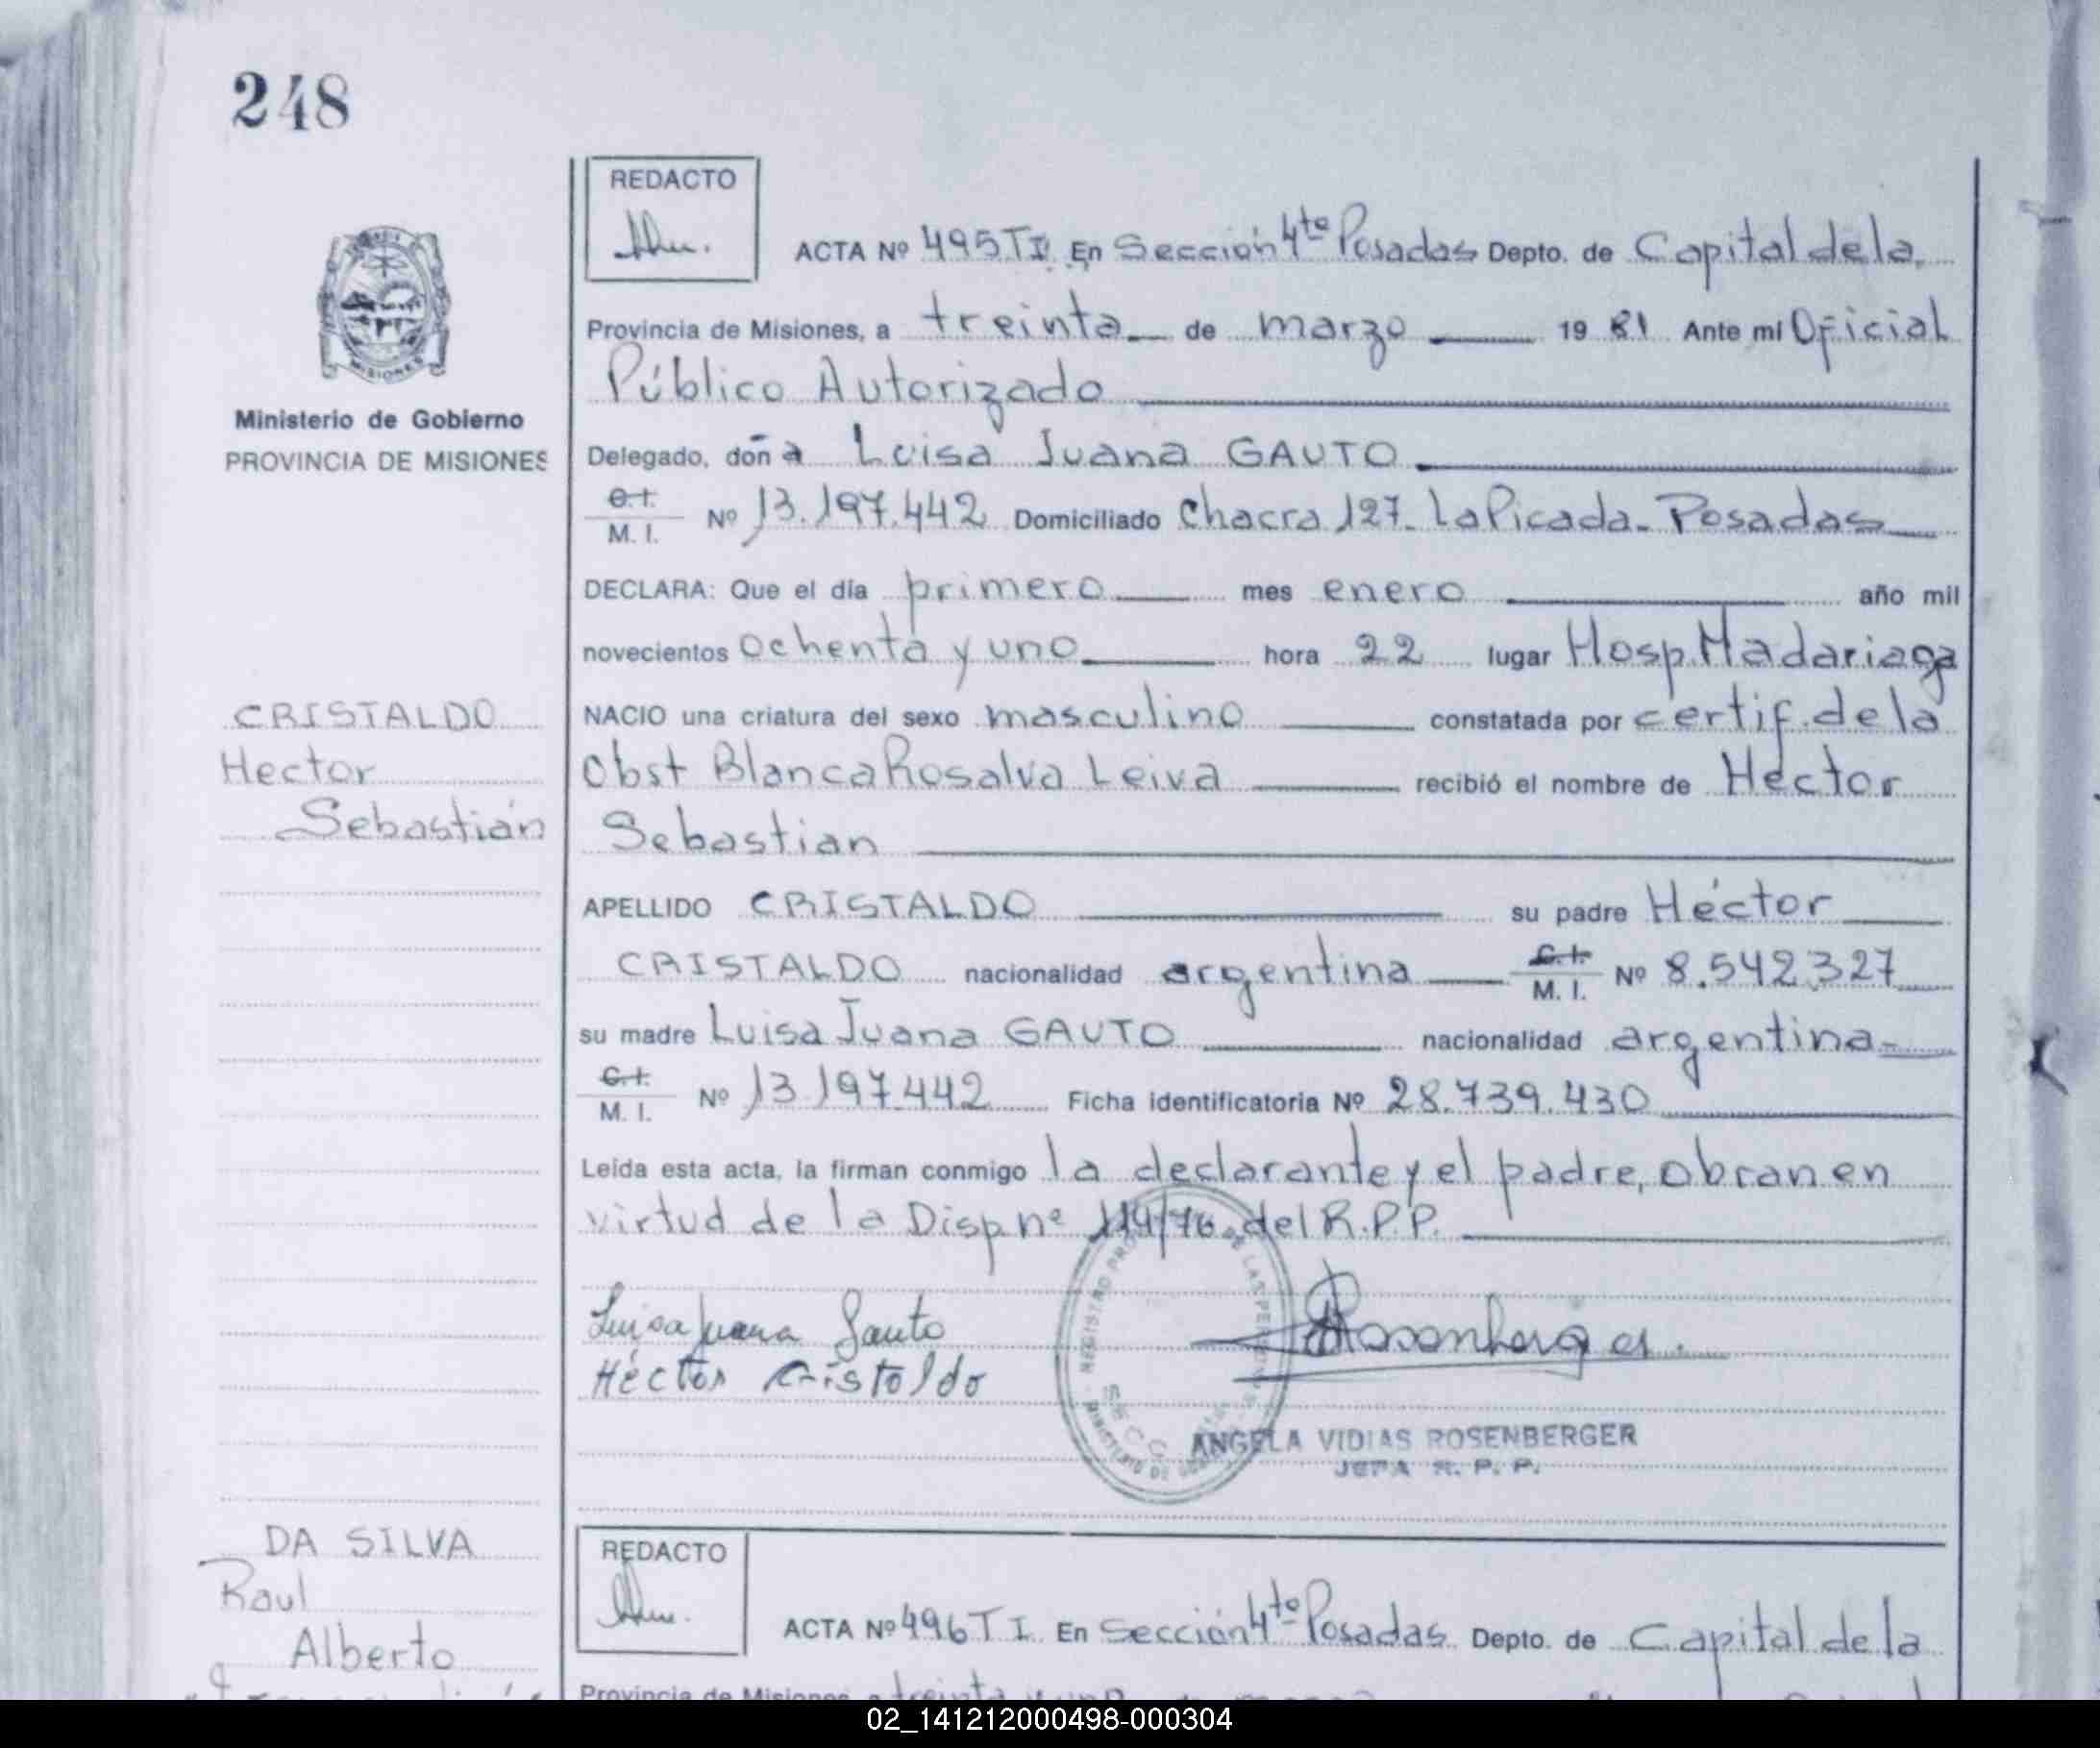 248
REDACTO
ACTA Nº 495 T I. En Sección 4ta Posadas Depto. de Capital de la
Provincia de Misiones, a treinta de marzo 19 81 Ante mi Oficial
Público Autorizado
Ministerio de Gobierno
PROVINCIA DE MISIONES
Delegado, doña Luisa Juana GAUTO
C.I.
M. I. Nº 13.197.442 Domiciliado Chacra 127 - La Picada - Posadas
DECLARA: Que el día primero mes enero año mil
novecientos ochenta y uno hora 22 lugar Hosp. Madariaga
CRISTALDO
Hector
Sebastián
NACIO una criatura del sexo masculino constatada por certif. de la
Obst Blanca Rosalva Leiva recibió el nombre de Héctor
Sebastian
APELLIDO CRISTALDO su padre Héctor
CRISTALDO nacionalidad argentina C.I. M. I. Nº 8.542.327
su madre Luisa Juana GAUTO nacionalidad argentina
C.I.
M. I. Nº 13.197.442 Ficha identificatoria Nº 28.739.430
Leída esta acta, la firman conmigo la declarante y el padre, obran en
virtud de la Disp. nº 114/76 del R.P.P.
Luisa Juana Gauto
Héctor Cristaldo
Rosenberger
ANGELA VIDIAS ROSENBERGER
JEFA R. P. P.
DA SILVA
Raul
Alberto
REDACTO
ACTA Nº 496 T I. En Sección 4ta Posadas Depto. de Capital de la
Provincia de Misiones, a treinta y uno
02_141212000498-000304